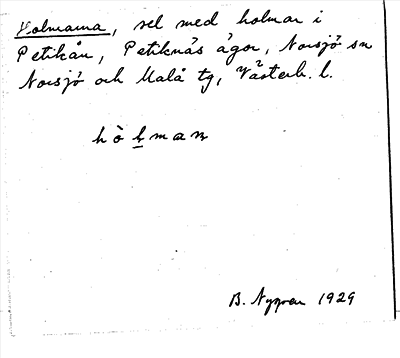 Holmarna, sel med holmar i
Petikån, Petiknäs ägor, Norsjö sn
Norsjö och Malå tg, Västerb. l.
hòḷman
B. Nygren 1929